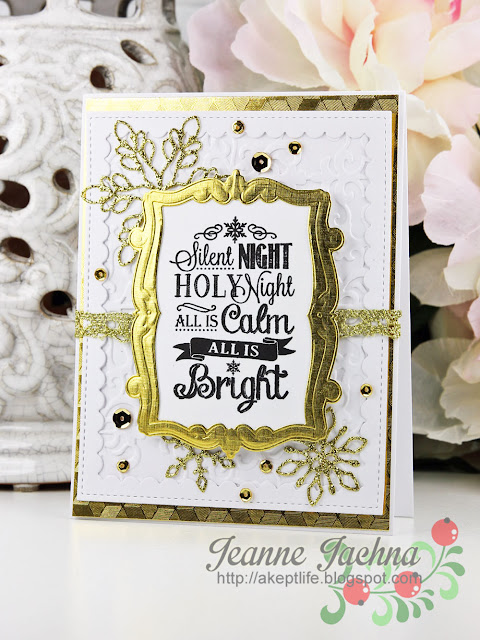 Silent NIGHT
HOLY Night
ALL IS Calm
ALL IS
Bright
Jeanne Jachna
http://akeptlife.blogspot.com